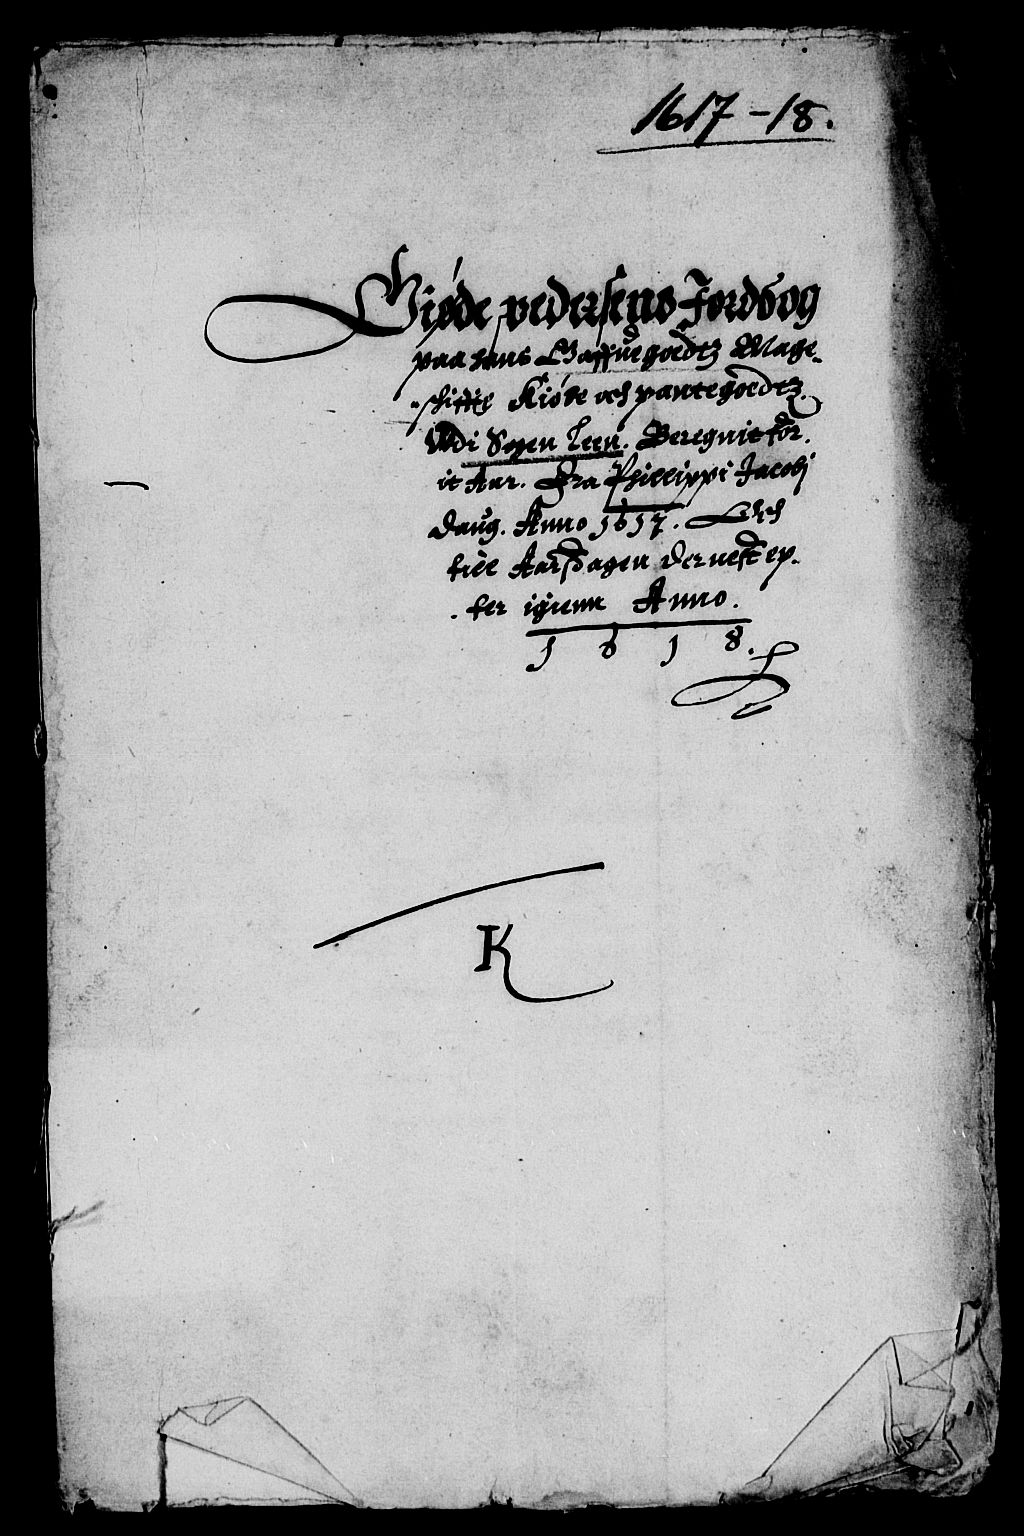 1617-18.
Giøde pedersens Jordbog
paa hans Gaffuegoedtz Mage-
schiffte Kiøbe och pantegoedtz
Udi Sogen Leen. Beregnit for
it Aar. Fra Philippi Jacobj
daug. Anno 1617. Och
till Aarsdagen dernest ep-
ter igienn Anno.
1618.
K